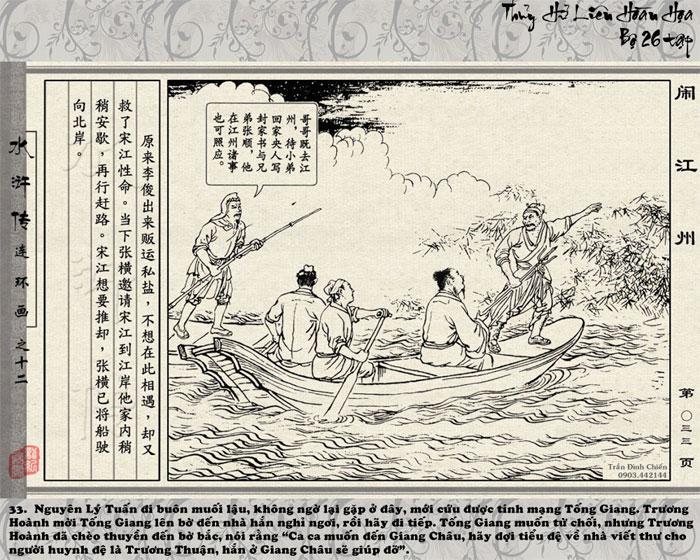 Thủy Hử Liên Hoàn Họa
Bộ 26 tập
闹江州
第〇三三页
水浒传连环画之十二
哥哥既去江
州，待小弟
回家央人写
封家书与兄
弟张顺，他
在江州诸事
也可照应。
原来李俊出来贩运私盐，不想在此相遇，却又
救了宋江性命。当下张横邀请宋江到江岸他家内稍
稍安歇，再行赶路。宋江想要推却，张横已将船驶
向北岸。
Trần Đình Chiến
0903.442144
33. Nguyên Lý Tuấn đi buôn muối lậu, không ngờ lại gặp ở đây, mới cứu được tính mạng Tống Giang. Trương
Hoành mời Tống Giang lên bờ đến nhà hắn nghỉ ngơi, rồi hãy đi tiếp. Tống Giang muốn từ chối, nhưng Trương
Hoành đã chèo thuyền đến bờ bắc, nói rằng “Ca ca muốn đến Giang Châu, hãy đợi tiểu đệ về nhà viết thư cho
người huynh đệ là Trương Thuận, hắn ở Giang Châu sẽ giúp đỡ”.